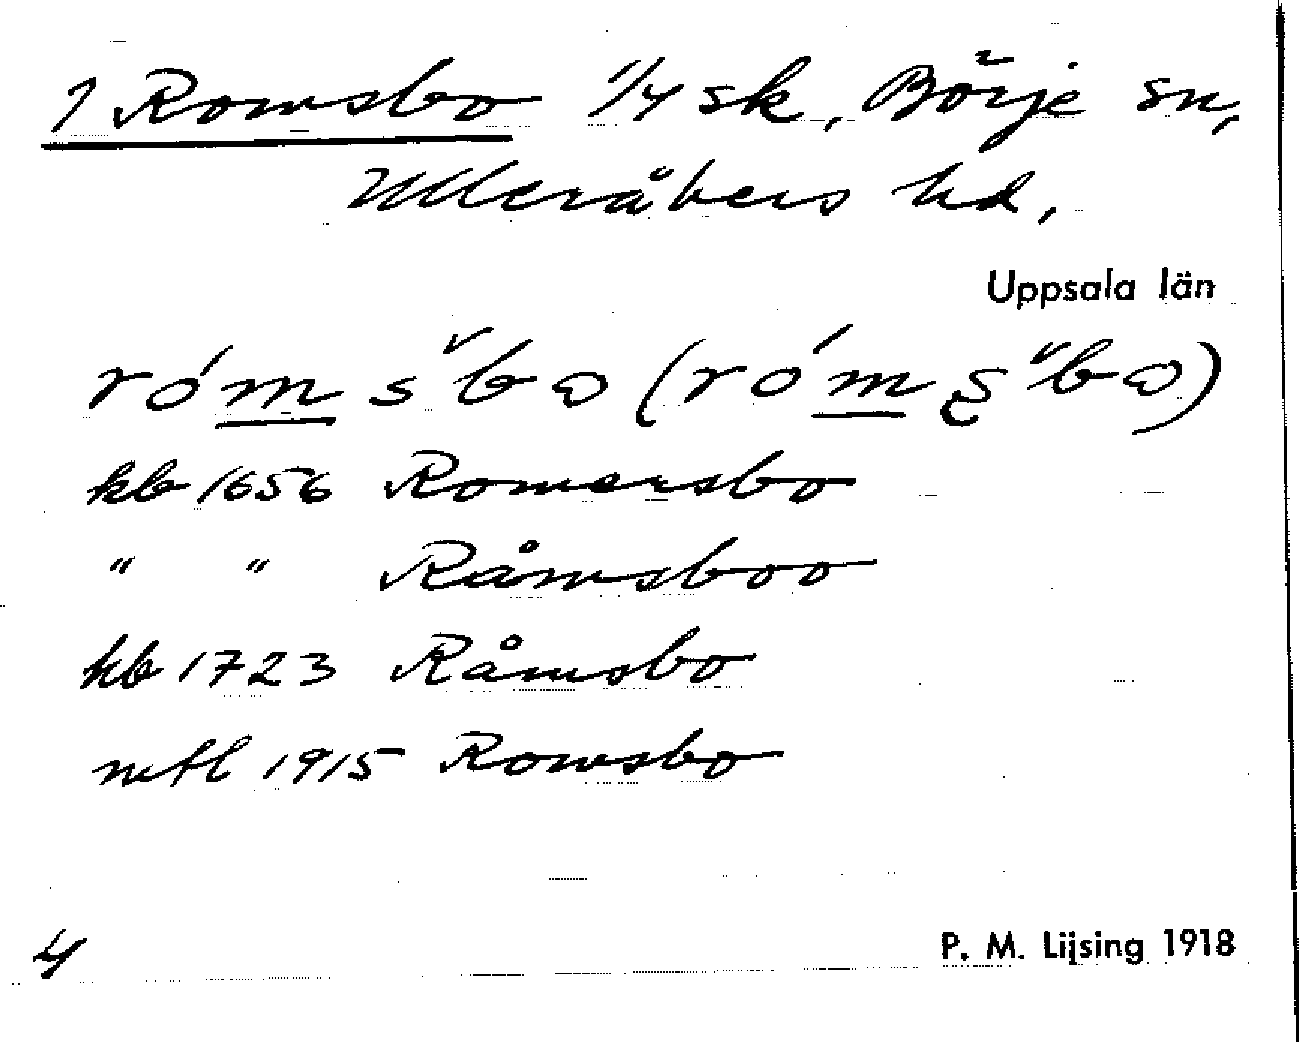 1 Romsbo 1/4 sk, Börje sn,
Ulleråkers hd,
Uppsala län
kb 1656 Romersbo
" " Råmsboo
kb 1723 Råmsbo
mtl 1915 Romsbo
4
P. M. Lijsing 1918